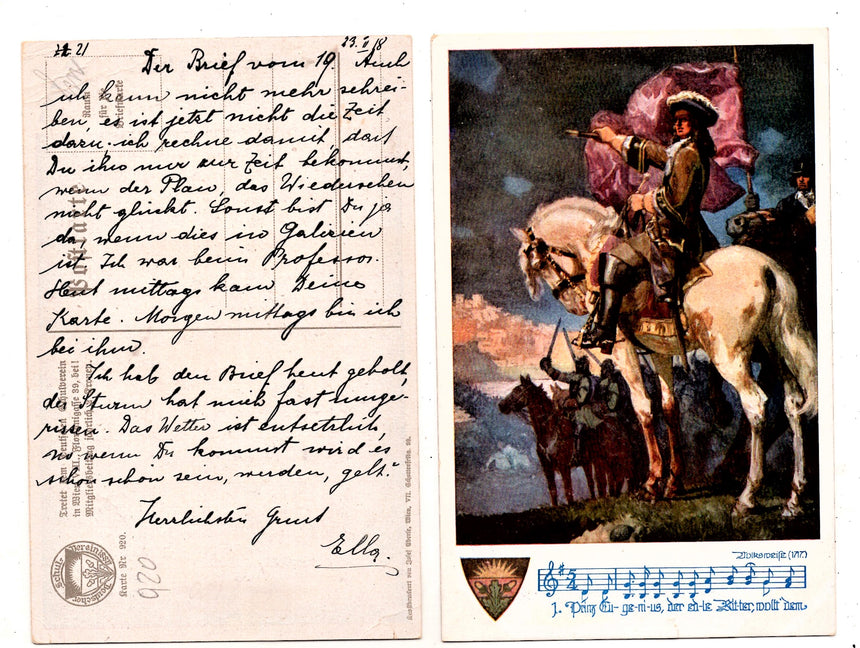 21
23. II 18
Der Brief vom 19 Auch
ich kann nicht mehr schrei-
ben, es ist jetzt nicht die Zeit
dazu; ich rechne damit, daß
Du ihn nur zur Zeit bekommst,
wenn der Plan, das Wiedersehen
nicht glückt. Sonst bist Du ja
da, wenn dies in Galizien
ist. Ich war beim Professor.
Heut mittags kam Deine
Karte. Morgen mittags bin ich
bei ihm.
Ich hab den Brief heut geholt,
der Sturm hat mich fast umge-
rissen. Das Wetter ist entsetzlich,
no wenn Du kommst wird es
schon schön sein, werden, gelt?
Herzlichsten Gruß
Ella.
Raum
für
Briefmarke
Postkarte
Tretet dem Deutschen Schulverein
in Wien, VIII., Florianigasse 39, bei!
Mitgliedsbeitrag jährlich 2 Kronen.
Deutscher Schulverein 1880
Karte Nr 920.
920
Kunstdruckerei von Josef Eberle, Wien, VII. Schottenfeldg. 38.
Volksweise (1717)
1. Prinz Eu-ge-ni-us, der ed-le Rit-ter, wollt' dem